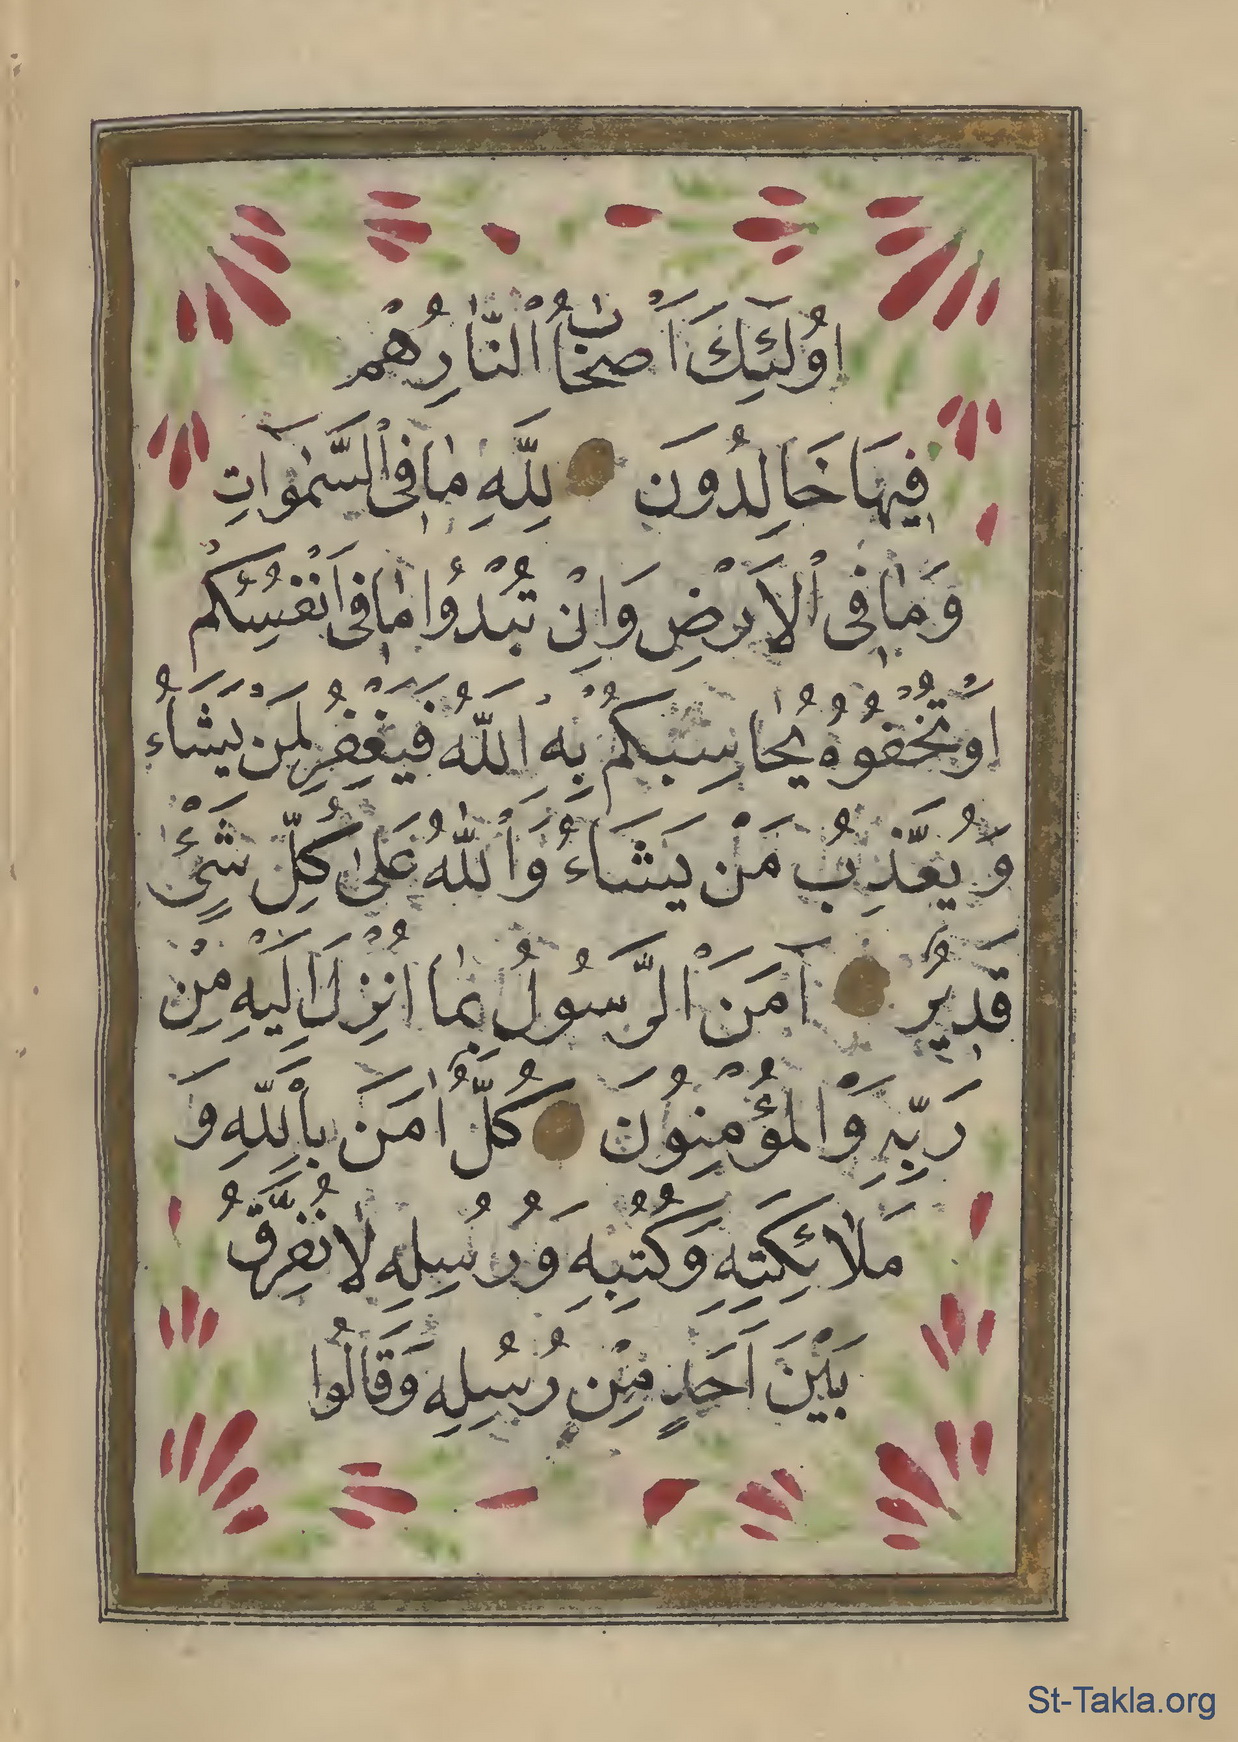 اُولٰئِكَ اَصْحَابُ النَّارِ هُمْ
فِيهَا خَالِدُونَ لِلّٰهِ مٰا فِى السَّمٰوَاتِ
وَمٰا فِى الْاَرْضِ وَاِنْ تُبْدُوا مٰا فِى اَنْفُسِكُمْ
اَوْ تُخْفُوهُ يُحٰاسِبْكُمْ بِهِ اللّٰهُ فَيَغْفِرُ لِمَنْ يَشَاءُ
وَيُعَذِّبُ مَنْ يَشَاءُ وَاللّٰهُ عَلىٰ كُلِّ شَىْءٍ
قَدِيرٌ آمَنَ الرَّسُولُ بِمٰا اُنْزِلَ اِلَيْهِ مِنْ
رَبِّهِ وَالْمُؤْمِنُونَ كُلٌّ اٰمَنَ بِاللّٰهِ وَ
مَلٰائِكَتِهِ وَكُتُبِهِ وَرُسُلِهِ لٰا نُفَرِّقُ
بَيْنَ اَحَدٍ مِنْ رُسُلِهِ وَقَالُوا
St-Takla.org